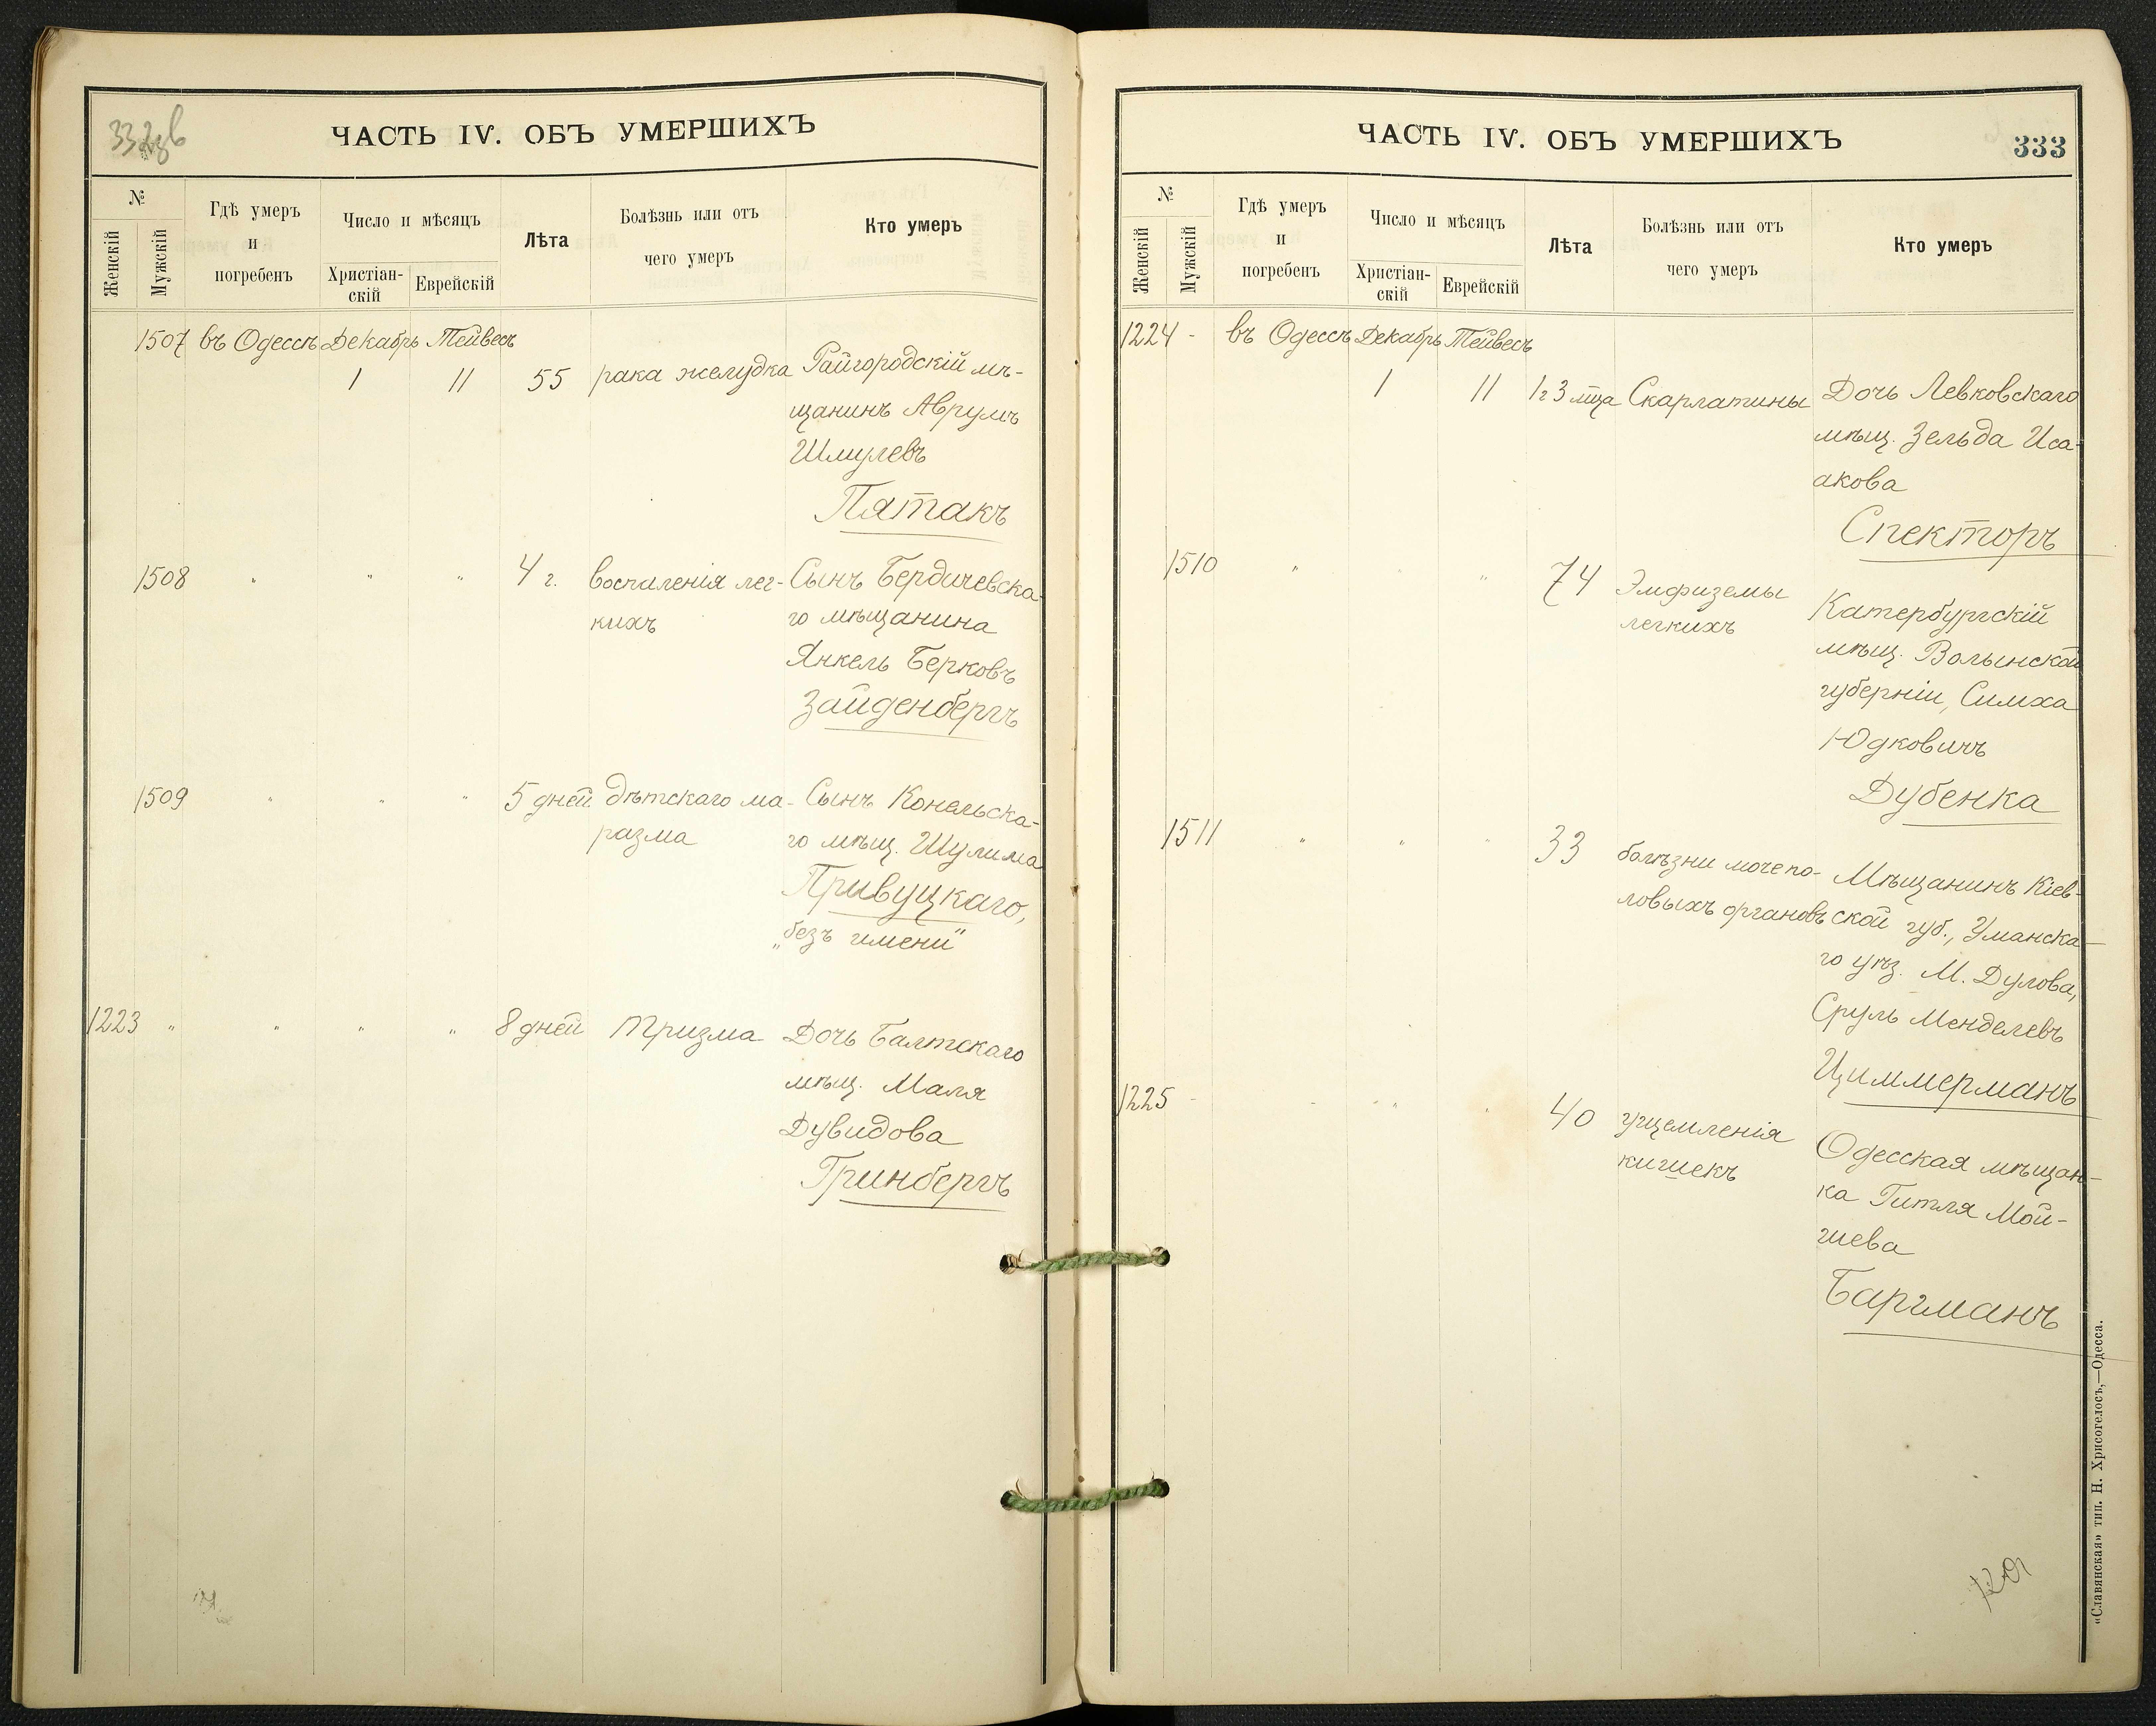 332об
ЧАСТЬ IV. ОБЪ УМЕРШИХЪ
№
Женскій
Мужскій
Гдѣ умеръ
и
погребенъ
Число и мѣсяцъ
Христіан-
скій
Еврейскій
Лѣта
Болѣзнь или отъ
чего умеръ
Кто умеръ
1507 въ Одессѣ Декабрь Тейвесъ
1 11 55 рака желудка Райгородскій мѣ-
щанинъ Аврумъ
Шмулевъ
Пятакъ
1508 " " " 4 г. воспаленія лег- Сынъ Бердичевска-
кихъ го мѣщанина
Янкель Берковъ
Зайденбергъ
1509 " " " 5 дней дѣтскаго ма- Сынъ Конельска-
разма го мѣщ. Шулима
Привуцкаго,
„безъ имени"
1223 " " " " 8 дней тризма Дочь Балтскаго
мѣщ. Маля
Дувидова
Гринбергъ
ЧАСТЬ IV. ОБЪ УМЕРШИХЪ
333
№
Женскій
Мужскій
Гдѣ умеръ
и
погребенъ
Число и мѣсяцъ
Христіан-
скій
Еврейскій
Лѣта
Болѣзнь или отъ
чего умеръ
Кто умеръ
1224 - въ Одессѣ Декабрь Тейвесъ
1 11 1 г 3 мѣца Скарлатины Дочь Левковскаго
мѣщ. Зельда Иса-
акова
Спекторъ
1510 " " " 74 Эмфиземы Катербургскій
легкихъ мѣщ. Волынской
губерніи, Симха
Юдковичъ
Дубенка
1511 " " " 33 болѣзни мочепо- Мѣщанинъ Кіев-
ловыхъ органовъ ской губ., Уманска-
го уѣз. М. Дулова,
Сруль Менделевъ
Циммерманъ
1225 - - " " 40 ущемленія Одесская мѣщан-
кишекъ ка Гитля Мой-
шева
Баргманъ
«Славянская» тип. Н. Хрисогелосъ,—Одесса.